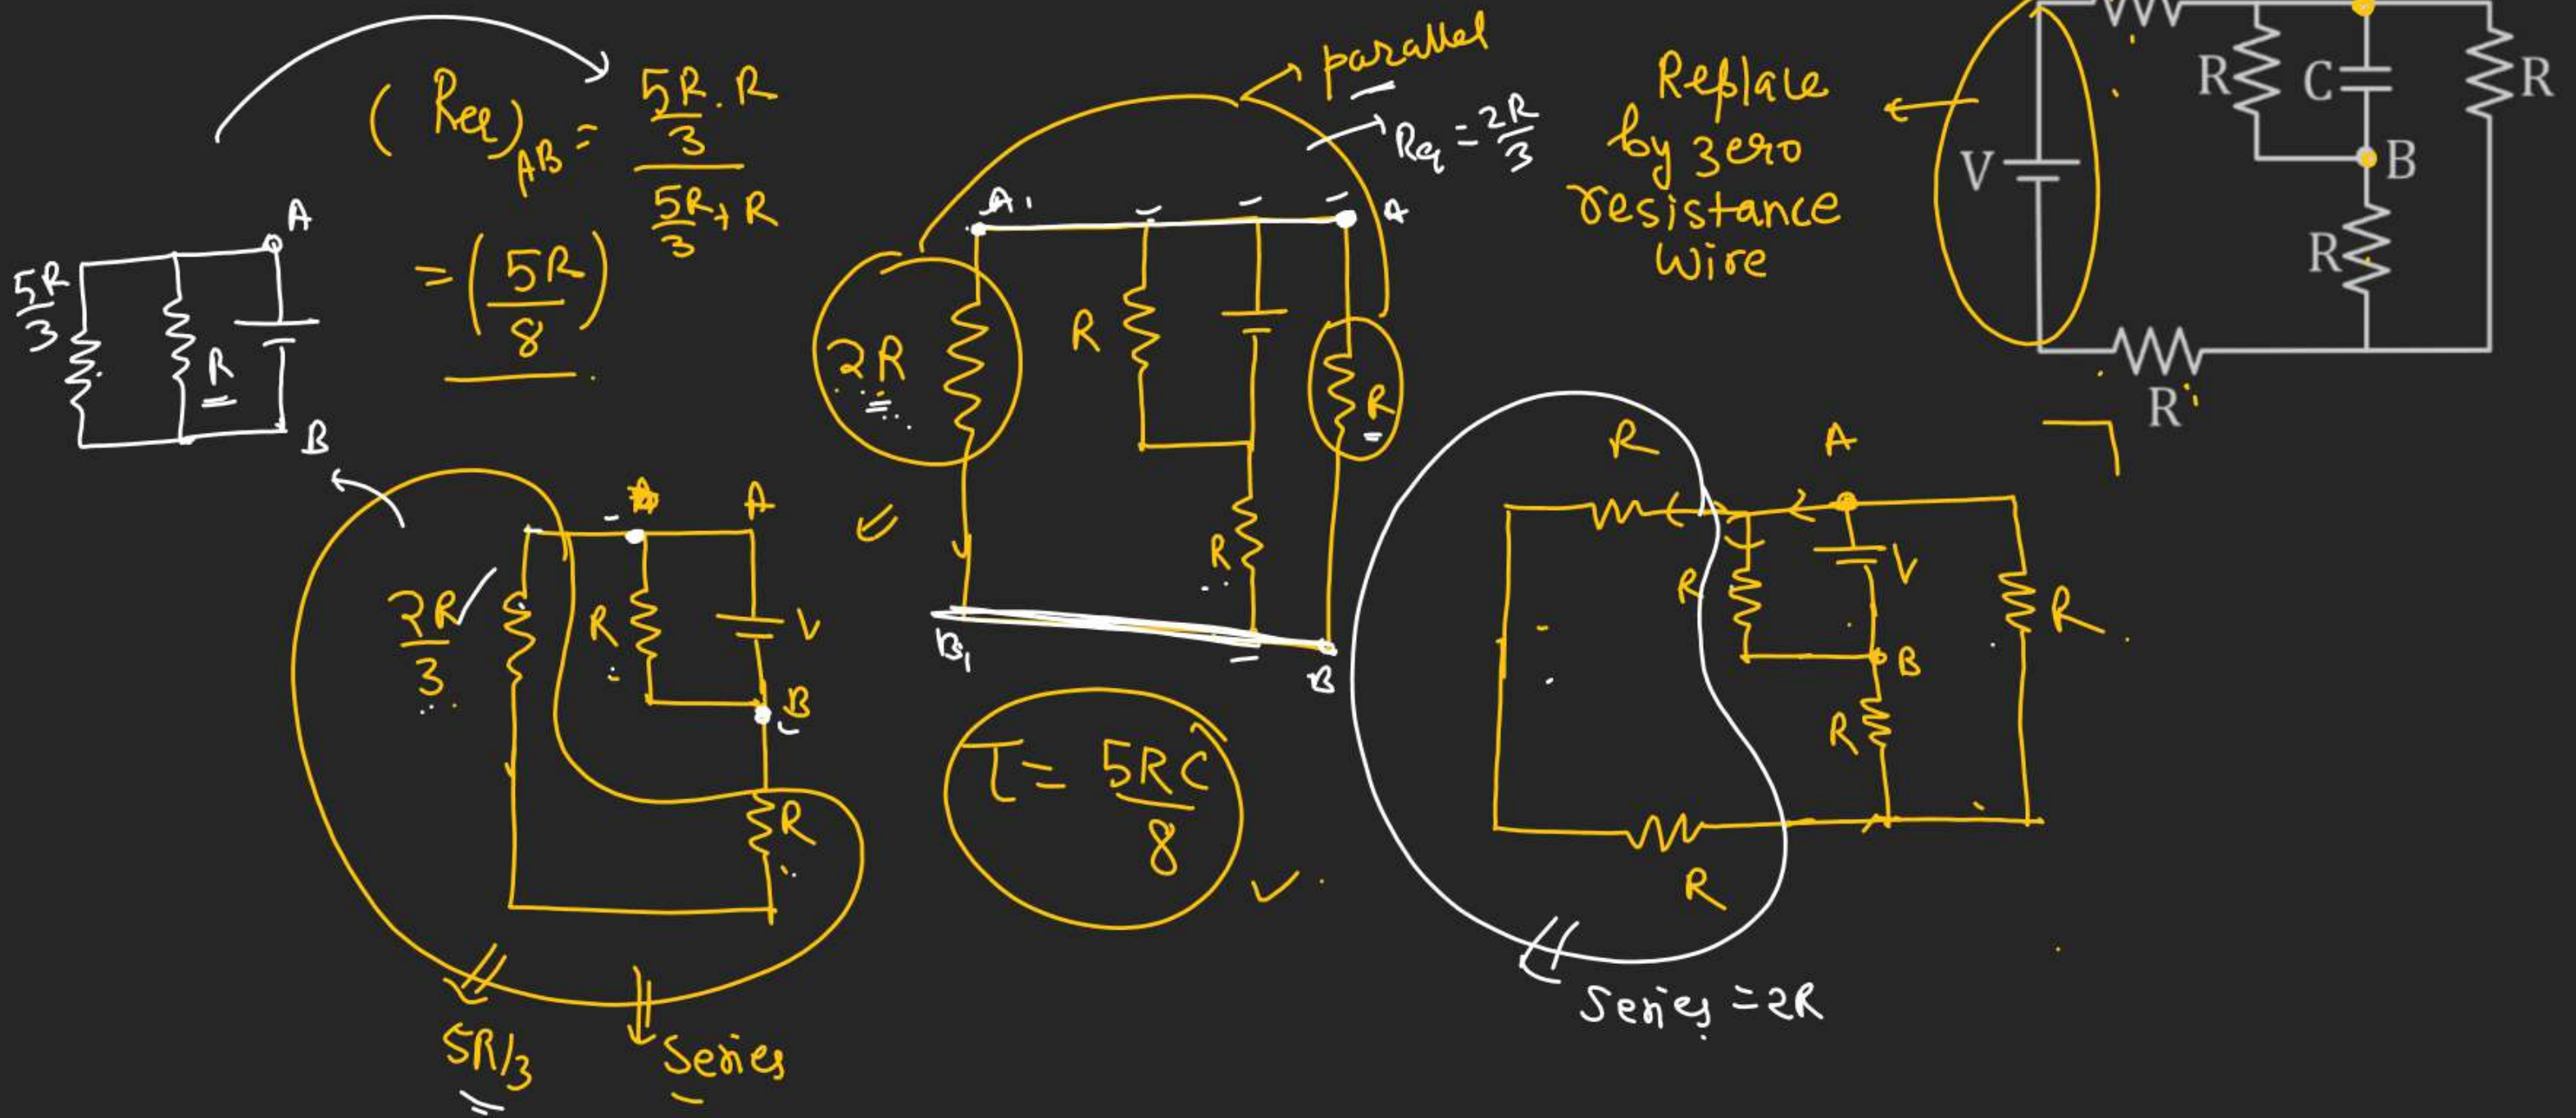 (Req)AB = 5R/3 . R / 5R/3 + R
= (5R/8)
A
5R/3
R
B
parallel
Req = 2R/3
A1
A
2R
R
R
R
B1
B
Replace
by zero
resistance
wire
V
R
C
R
B
R
R
2R/3
A
R
V
B
R
5R/3
Series
τ = 5RC/8
R
A
R
V
R
B
R
R
Series = 2R